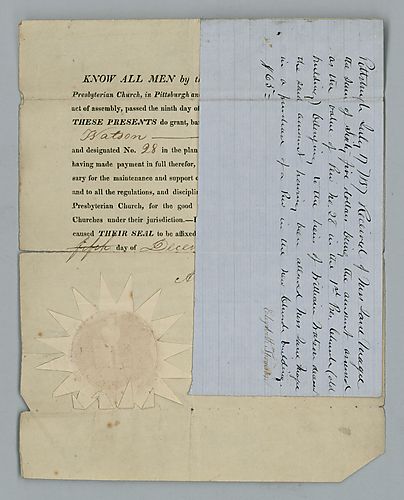 KNOW ALL MEN by th
Presbyterian Church, in Pittsburgh an
act of assembly, passed the ninth day of
THESE PRESENTS do grant, ba
Watson
and designated No. 28 in the plan
having made payment in full therefor,
sary for the maintenance and support o
and to all the regulations, and disciplin
Presbyterian Church, for the good
Churches under their jurisdiction.—I
caused THEIR SEAL to be affixed
fifth day of Decem
A
Pittsburgh July 17 Received of Miss Jane
the Sum of Sixty five dollars being the amount
as the value of Pew No. 28 in the 1st Pres. Church (old
building) belonging to the heirs of William Watson decd
the said amount having been allowed Miss Jane
in a purchase of a Pew in the New Church building
$65
Elizabeth